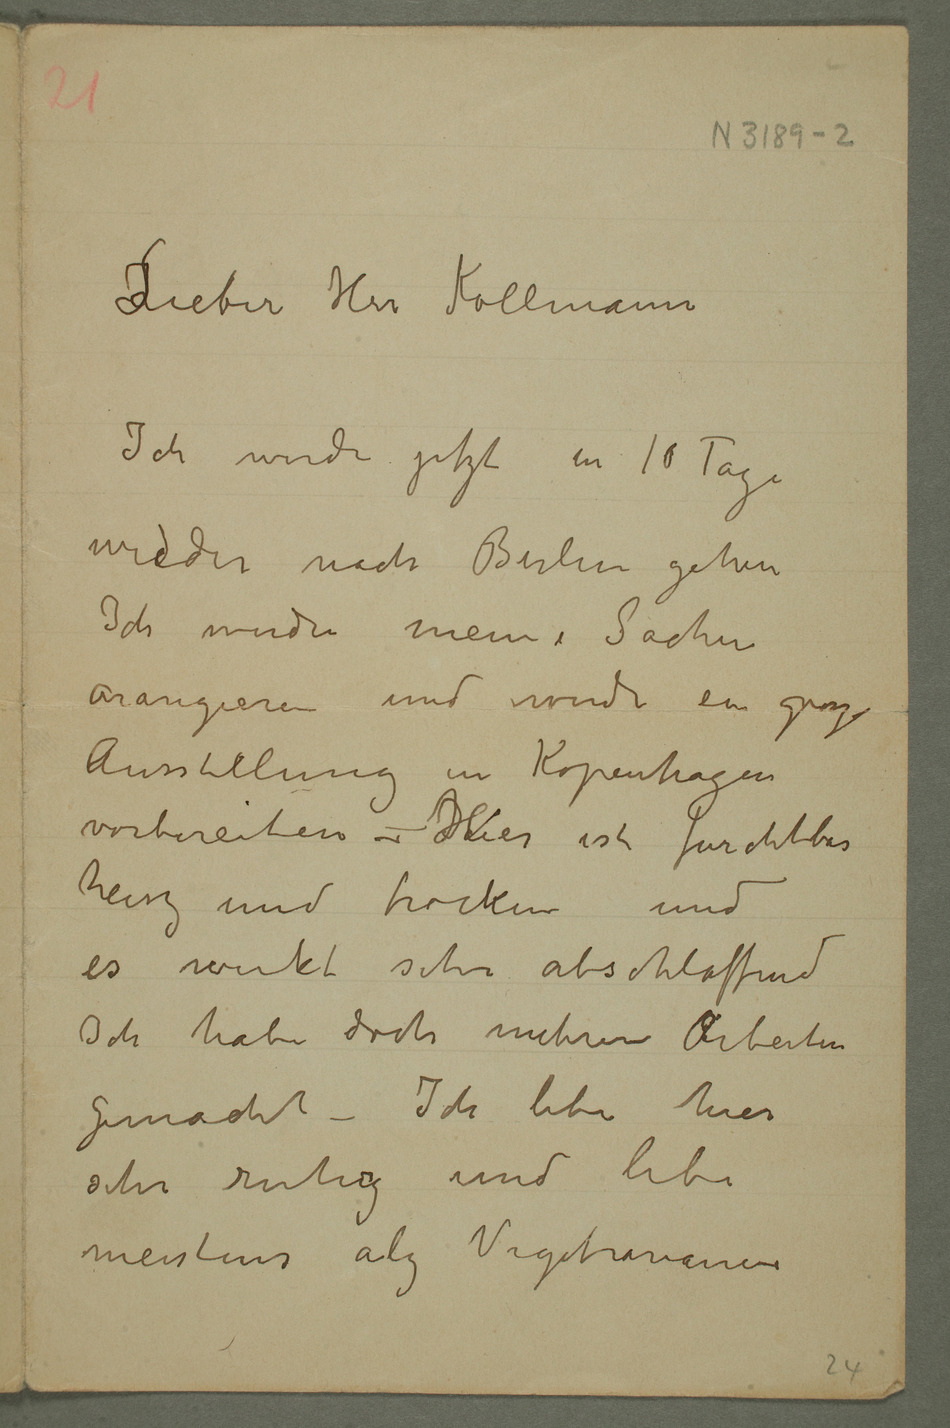 21
N 3189-2
Lieber Herr Kollmann
Ich werde jetzt in 10 Tage
wieder nach Berlin gehen
Ich werde meine Sachen
arangieren und werde ein grosze
Ausstellung in Kopenhagen
vorbereiten – Hier ist furchtbar
heisz und trocken und
es wirkt sehr abschlaffend
Ich habe doch mehrere Arbeiten
gemacht – Ich lebe hier
sehr ruhig und lebe
meistens alz Vegetarianer
24